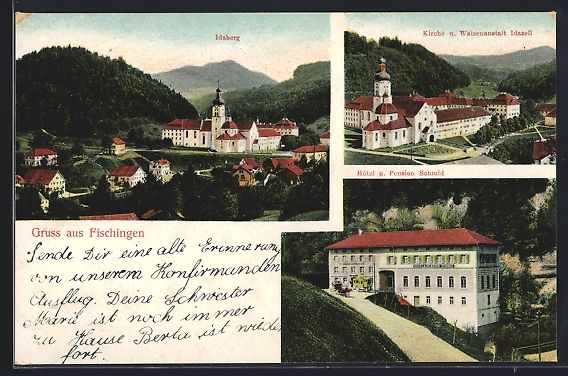 Idaberg
Kirche u. Waisenanstalt Idazell
Hôtel u. Pension Schmid
Gruss aus Fischingen
Sende Dir eine alte Erinnerung
von unserem Konfirmanden
Ausflug. Deine Schwester
Marie ist noch immer
zu Hause Berta ist wieder
fort.